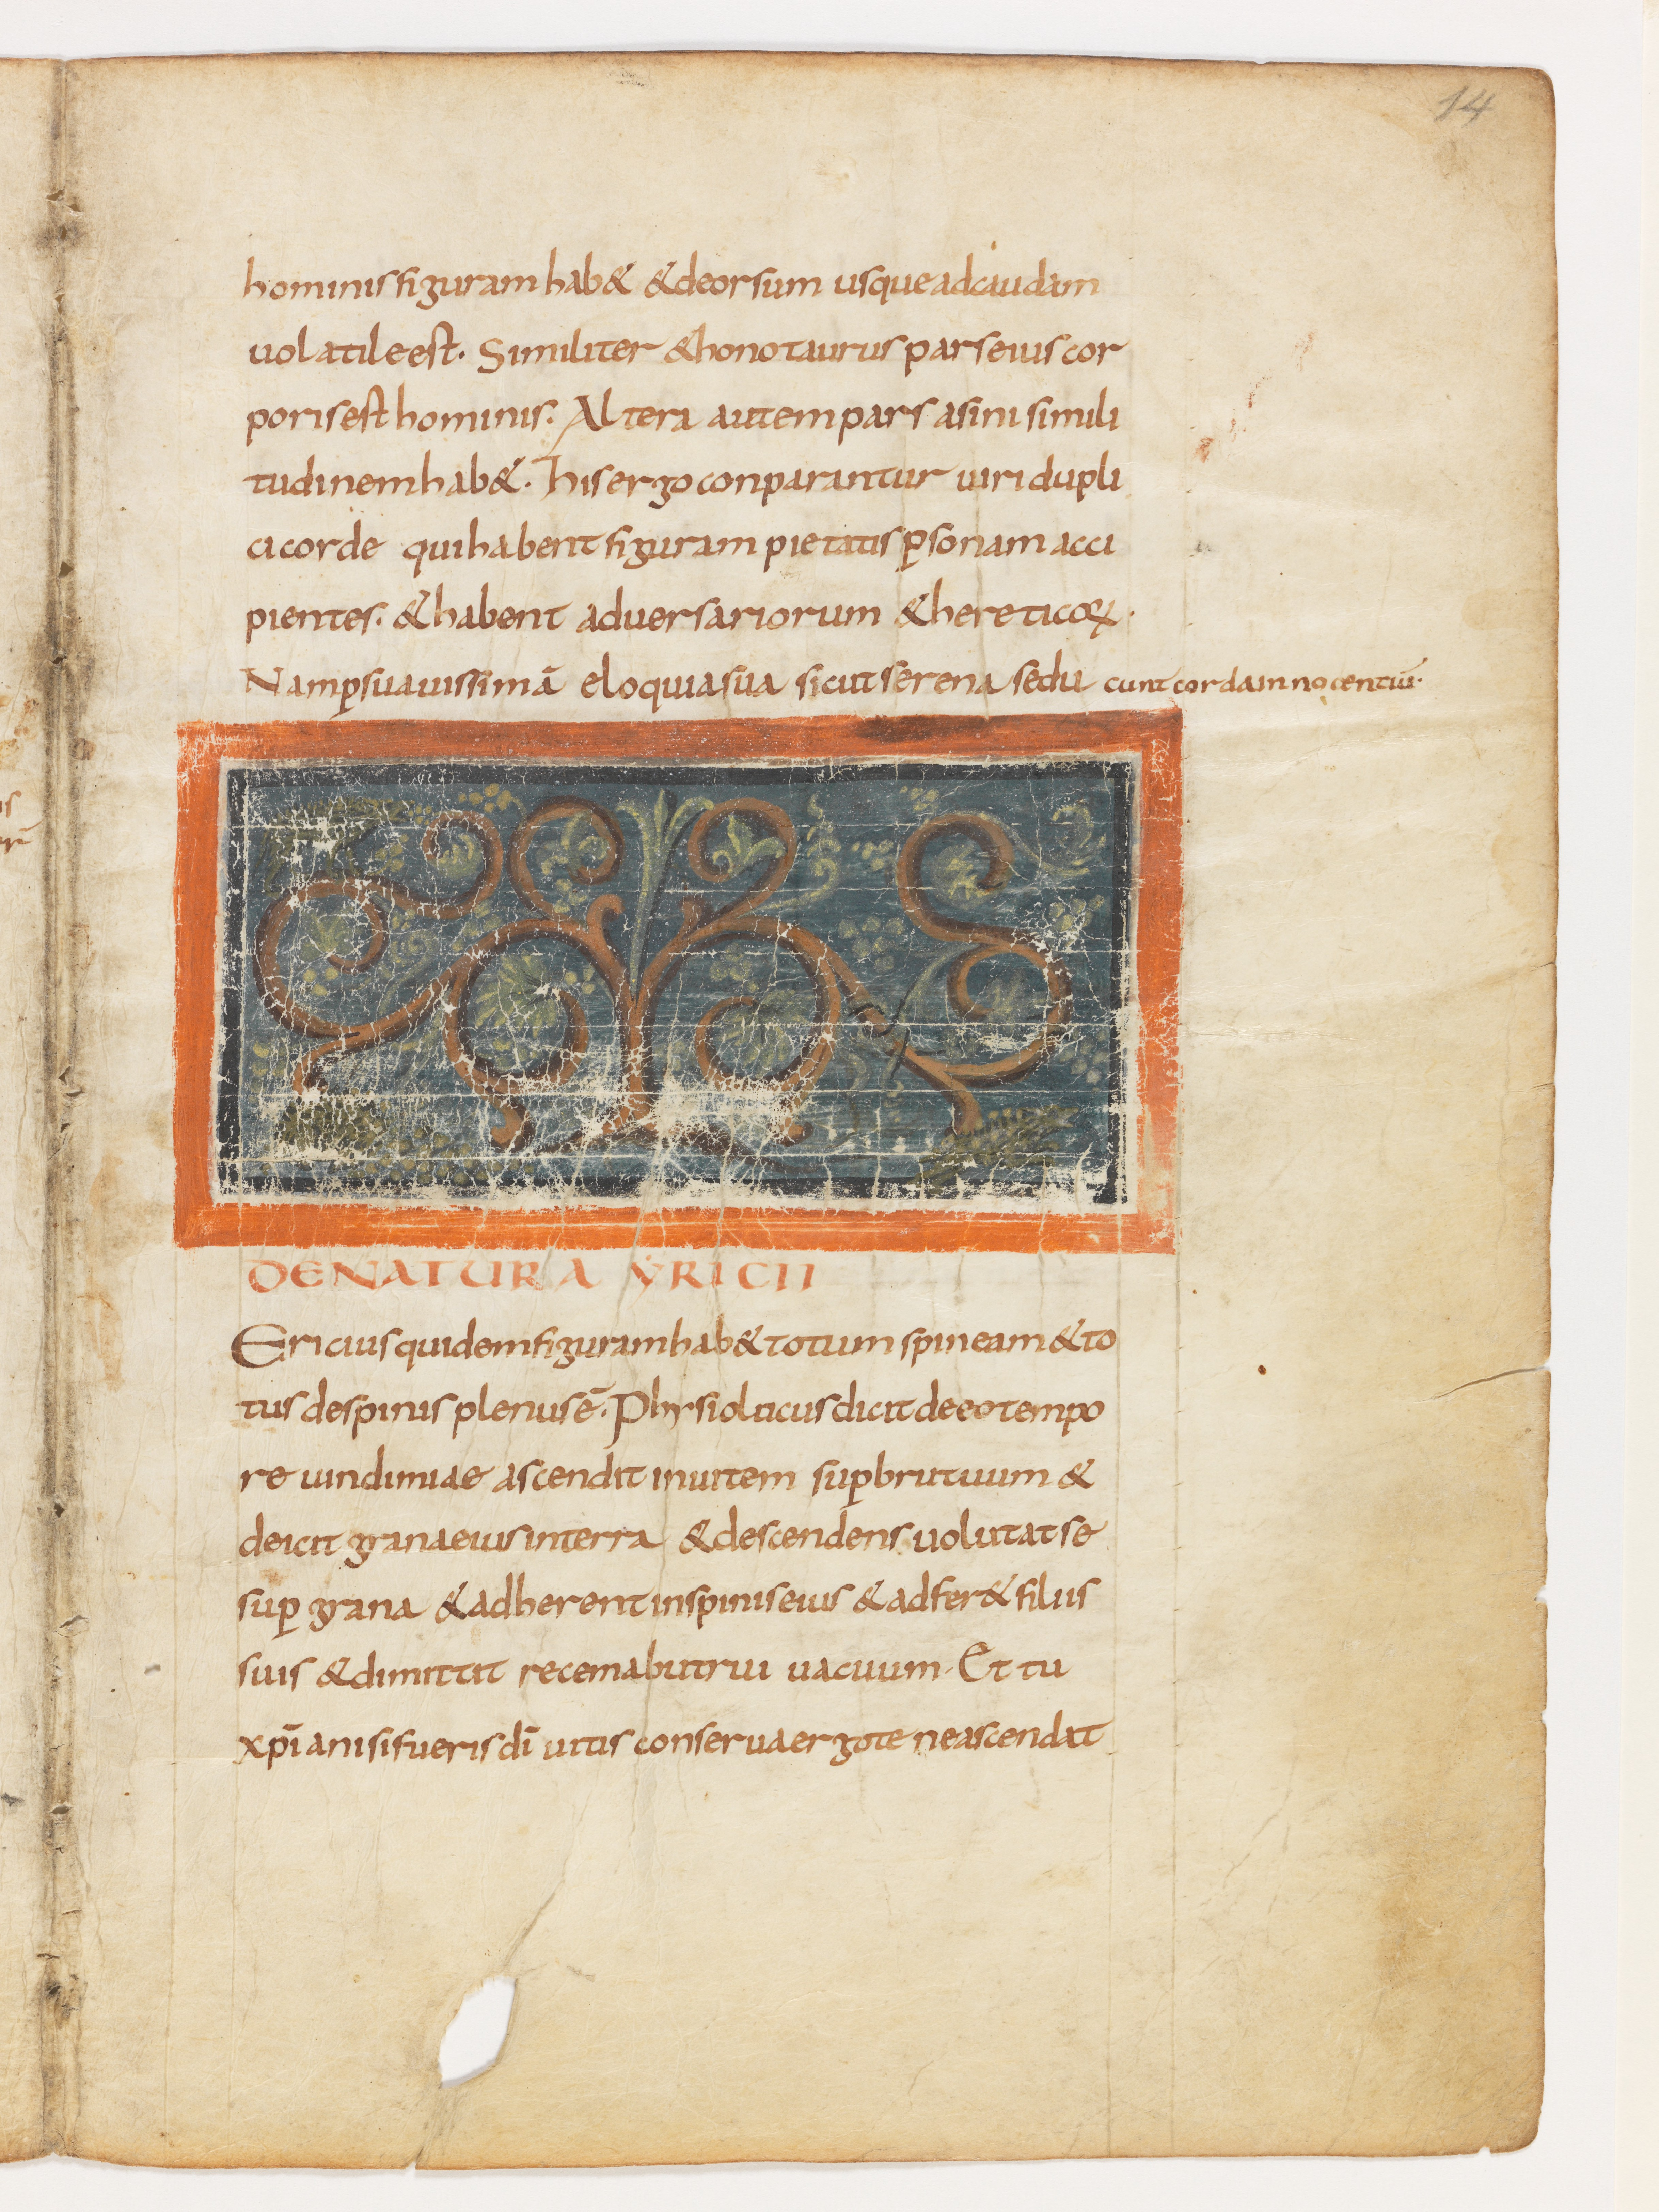 14
hominis figuram hab& &deorsum usque ad caudam
uolatile est. Similiter &honotaurus pars eius cor
poris est hominis. Altera autem pars asini simili
tudinem hab&. his ergo conparantur uiri dupli
ci corde qui habent figuram pietatis p̲sonam acci
pientes. &habent aduersariorum &hereticoꝝ.
Nam p̲ suauissimā eloquia sua sicut serena sedu cunt corda innocentiū.
DE NATURA YRICII
Ericius quidem figuram hab& totum spineam &to
tus de spinis plenus ē. Phisiolucus dicit de eo tempo
re uindimiae ascendit in uitem sup̲ brutuum &
deicit grana eius in terra &descendens uolutat se
sup̲ grana &adherent in spinis eius &adfer& filiis
suis &dimittit recemabutrui uacuum. Et tu
xp̄iani si fueris dī uitis conserua ergo te ne ascendat